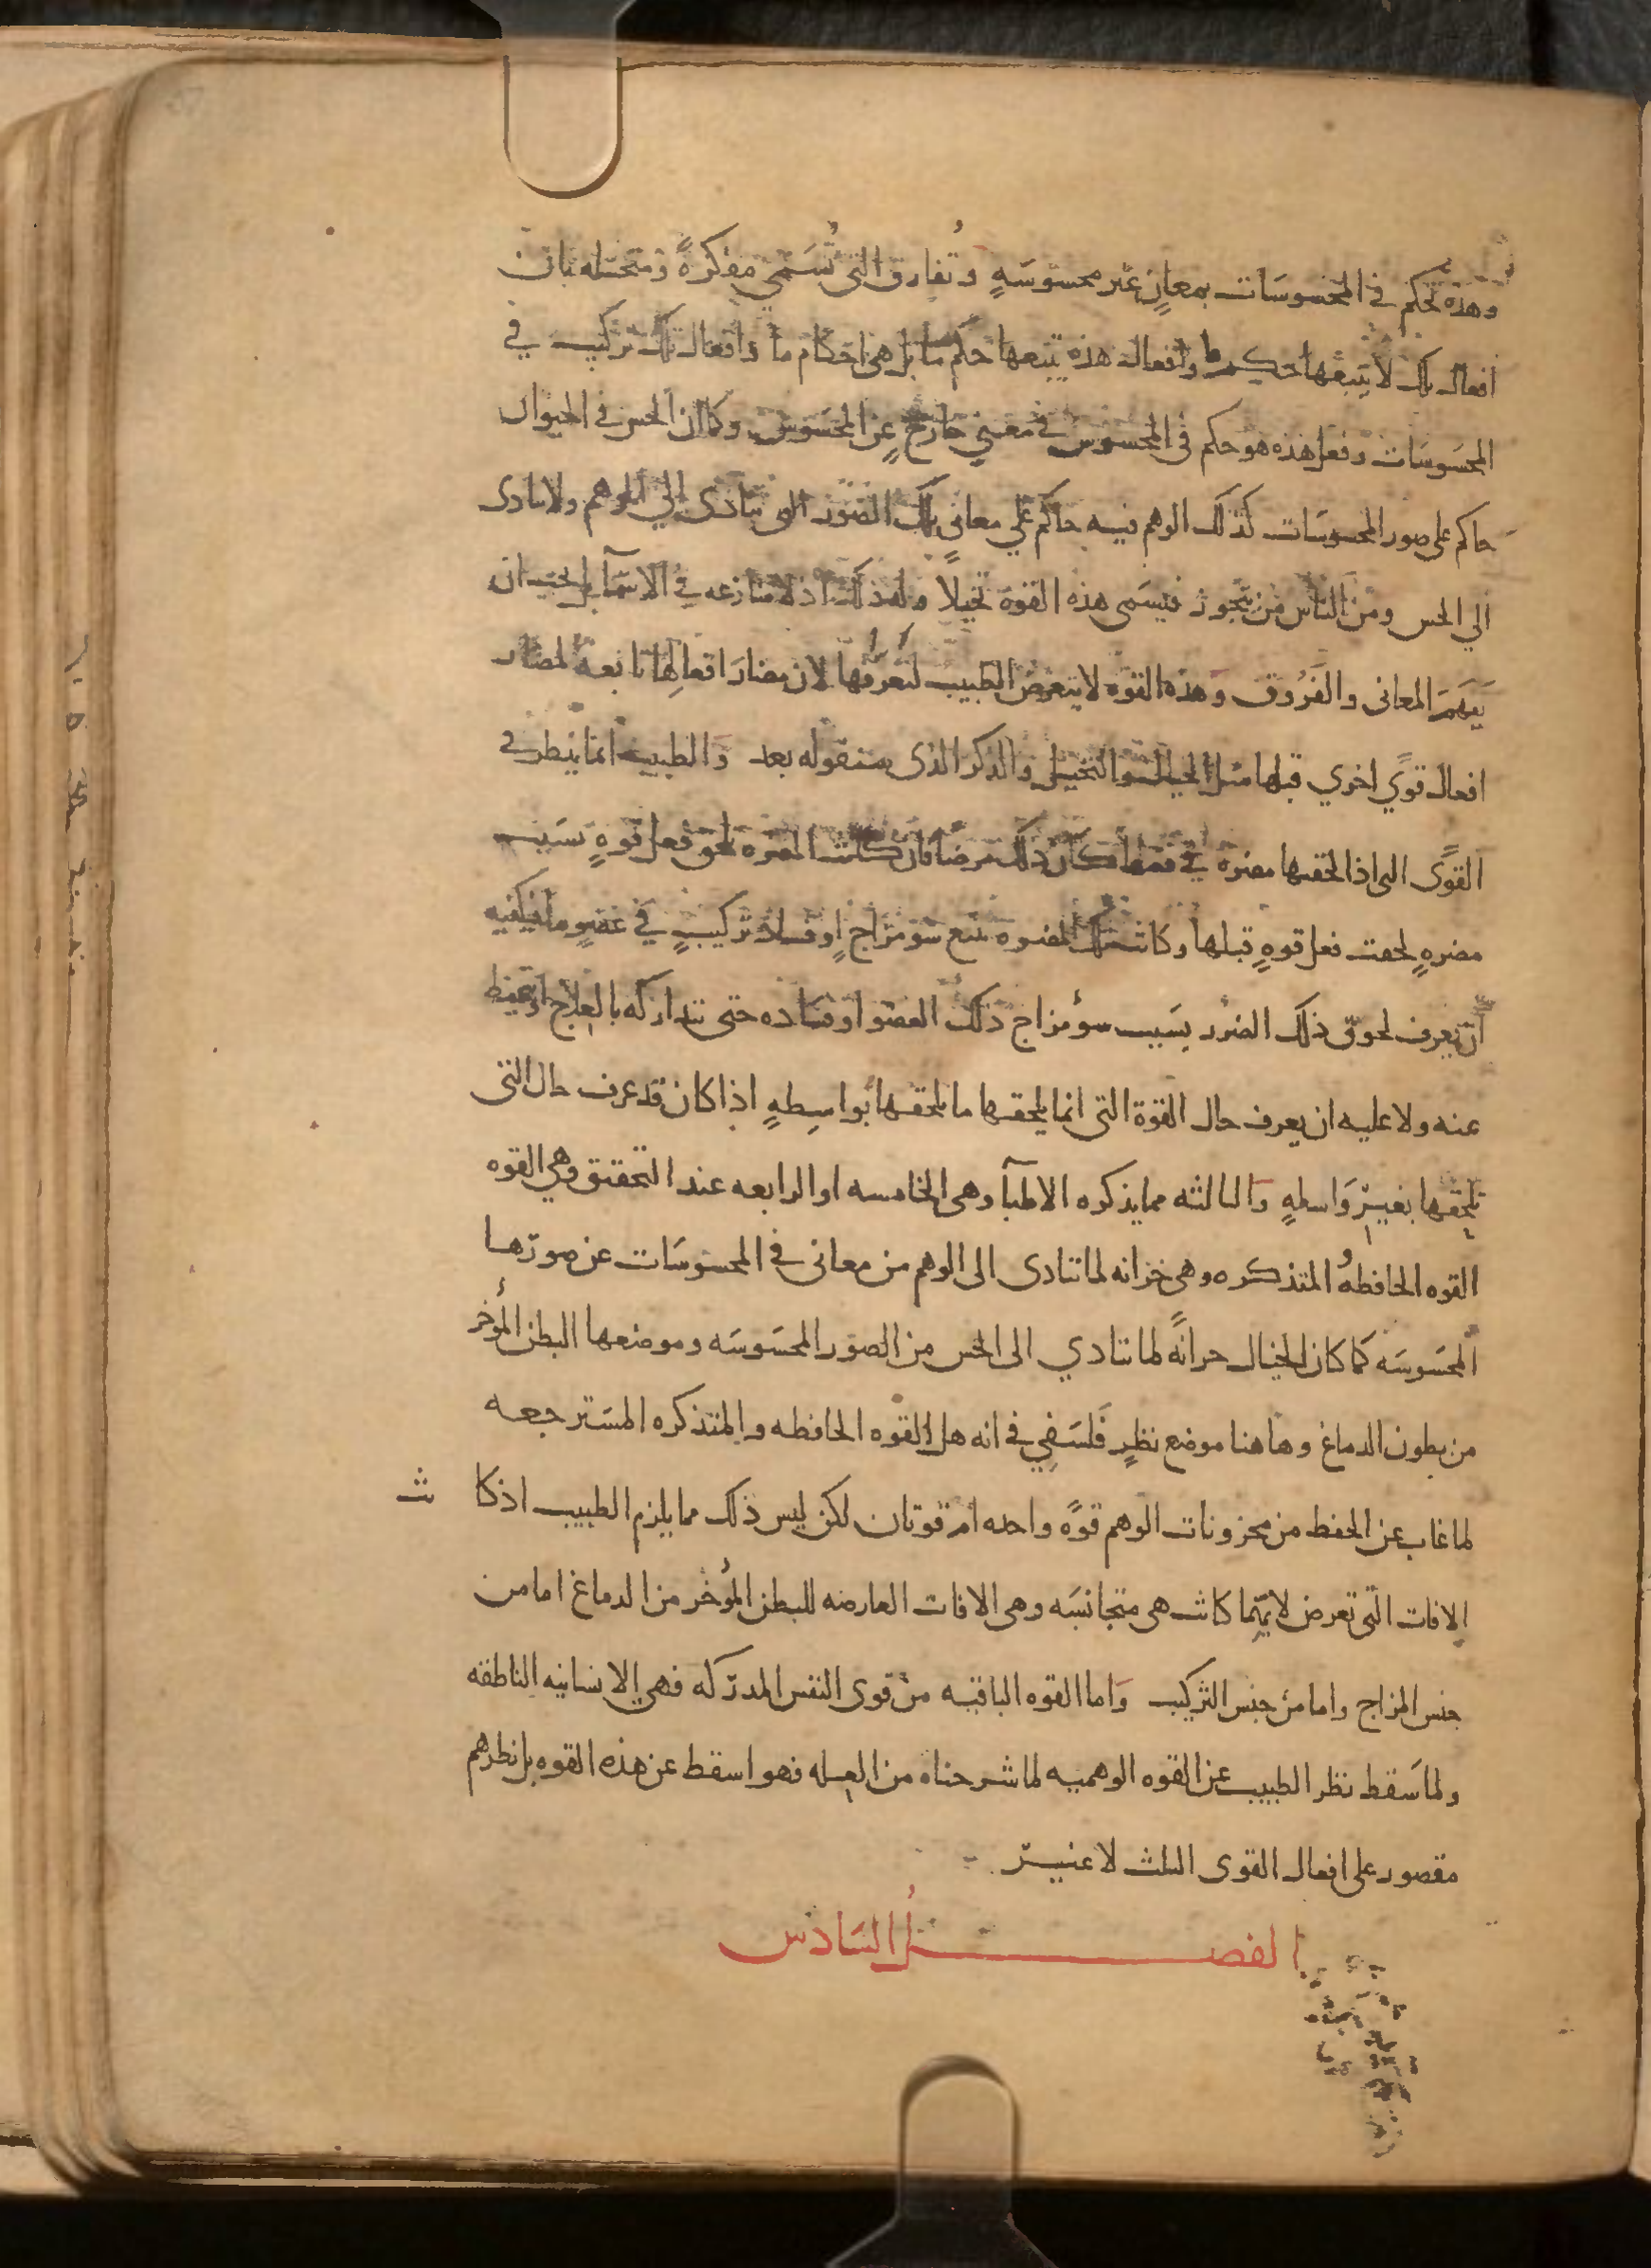 وهذه تحكم في المحسوسات بمعانٍ غير محسوسةٍ وتُفارق التي تُسَمي مفكرةً ومتخيله بان
افعال تلك لا يتبعها حكم ما وافعال هذه يتبعها حكم ما بل هي احكام ما وافعال تلك تركيب في
المحسَوسَات وفعل هذه هو حكم في المحسوس في معني خارجٍ عن المحسَوس وكما ان الحس في الحيوان
حاكم على صور المحسوسَات كذلك الوهم فيه حاكم علي معاني تلك الصُوَر التي تتادى الي الوهم ولا تتادى
الي الحس ومن الناس من يتجوز فيسَمي هذه القوة تخيلاً وله ذلك اذ لا منازعه في الاسمآ بل يجب ان
يَفهَمَ المعاني والفَرُوق وهذه القوه لا يتعرض الطبيب لتعرفها لان مضارَ افعالها تابعه لمضار
افعال قويً اخري قبلها مثل الخيال والتخيل والذكر الذى سنقوله بعد والطبيب انما ينظر في
القوًى التي اذا لحقها مضره في فعلها كان ذلك مرضًا فان كانت المضره تلحق فعل قوهٍ بسَبب
مضرهٍ لحقت فعل قوهٍ قبلها وكانت تلك المضره تتبع سَو مزاجٍ او فساد تركيبٍ في عضوٍ ما فيكفيه
ان يعرف لحوق ذلك الضرر بسَبب سوء مزاج ذلك العضو او فسَاده حتى يتداركه بالعلاج او يتحفظ
عنه ولا عليه ان يعرف حال القوة التي انما يلحقها ما يلحقها بواسِطهٍ اذا كان قد عرف حال التى
تلحقها بغير وَاسطهٍ وَالثالثه مما يذكره الاطبآ وهي الخامسه او الرابعه عند التحقيق وهي القوه
القوه الحافظهُ المتذكره وهى خزانه لما تتادى الى الوهم من معانى في المحسوسَات عن صورتها
المحسَوسَه كما كان الخيال خرانةً لما تتادي الى الحس من الصور المحسَوسَه وموضعها البطن المُؤخر
من بطون الدماغ وهاهنا موضع نظرٍ فَلسَفِي في انه هل القوه الحافظه والمتذكره المسَترجعه
لما غاب عن الحفظ من مخزونات الوهم قوةً واحده ام قوتان لكن ليس ذلك مما يلزم الطبيب اذ كا نت
الافات التى تعرض لايّهما كانت هى متجانسَه وهى الافات العارضه للبطن المُؤخر من الدماغ اما من
جنس المزاج واما من جنس التركيب وَاما القوه الباقيه من قوى النفس المدركه فهي الانسانيه الناطقه
ولما سَقط نظر الطبيب عن القوه الوهميه لما شرحناه من العله فهو اسقط عن هذه القوه بل نظرهم
مقصور على افعال القوى الثلث لا غير
الفصل السَادس